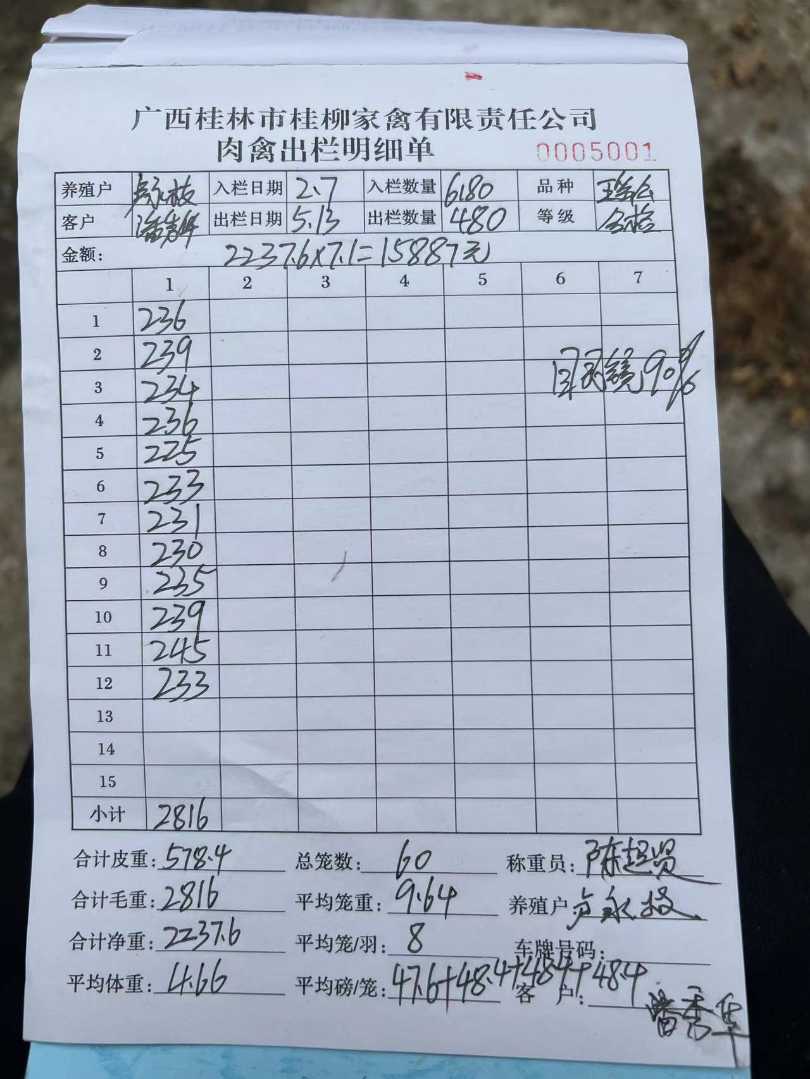 广西桂林市桂柳家禽有限责任公司
肉禽出栏明细单 0005001
养殖户 入栏日期 2.7 入栏数量 6180 品种
客户 出栏日期 5.13 出栏数量 480 等级 合格
金额: 2237.6×7.1=15887元
1 2 3 4 5 6 7
1 236
2 239
3 234 90%
4 236
5 225
6 233
7 231
8 230
9 235
10 239
11 245
12 233
13
14
15
小计 2816
合计皮重: 578.4 总笼数: 60 称重员: 陈超贤
合计毛重: 2816 平均笼重: 9.64 养殖户
合计净重: 2237.6 平均笼/羽: 8 车牌号码:
平均体重: 4.66 平均磅/笼: 47.6+48.4+48.4+48.4 客户: